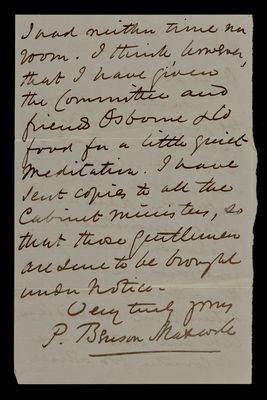 I had neither time nor
room. I think however,
that I have given
the Committee and
friend Osborne &Co
food for a little quiet
meditation. I have
sent copies to all the
Cabinet ministers, so
that those gentlemen
are sure to be brought
under notice.
Very truly yours
P. Benson Maxwell